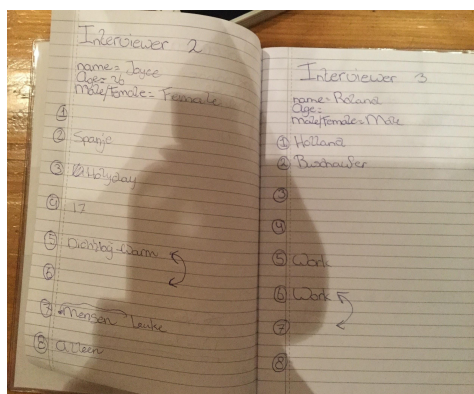 Interviewer 2
name= Joyce
Age= 26
Male/Female= Female
①
② Spanje
③ Holyday
④ 17
⑤ Dichtbij-Warm
⑥
⑦ mensen leuke
⑧ alleen
Interviewer 3
name= Roland
Age=
male/Female= Male
① Holland
②
③
④
⑤ Work
⑥ Work
⑦
⑧